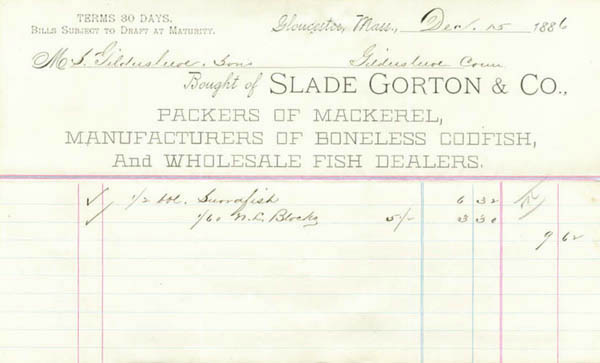 TERMS 30 DAYS.
BILLS SUBJECT TO DRAFT AT MATURITY.
Gloucester, Mass., Dec. 15 1886
M S. Gildersleeve. Sons Gildersleeve Conn
Bought of SLADE GORTON & CO.,
PACKERS OF MACKEREL,
MANUFACTURERS OF BONELESS CODFISH,
And WHOLESALE FISH DEALERS.
1/2 bbl. Swordfish 6 32
1/60 N.E. Blocks 5 1/2 3 30
9 62